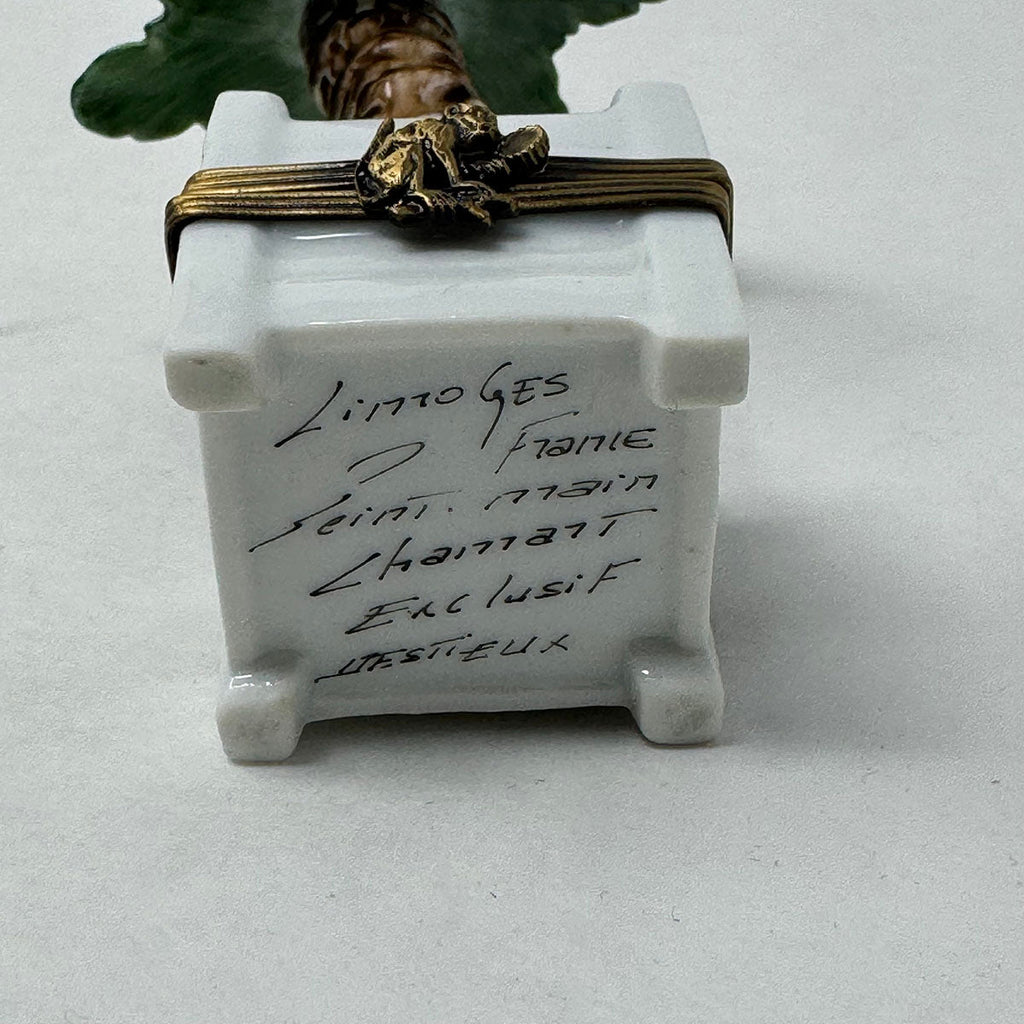 LimoGES
France
Peint. main
Chamart
Exclusif
DESTIEUX